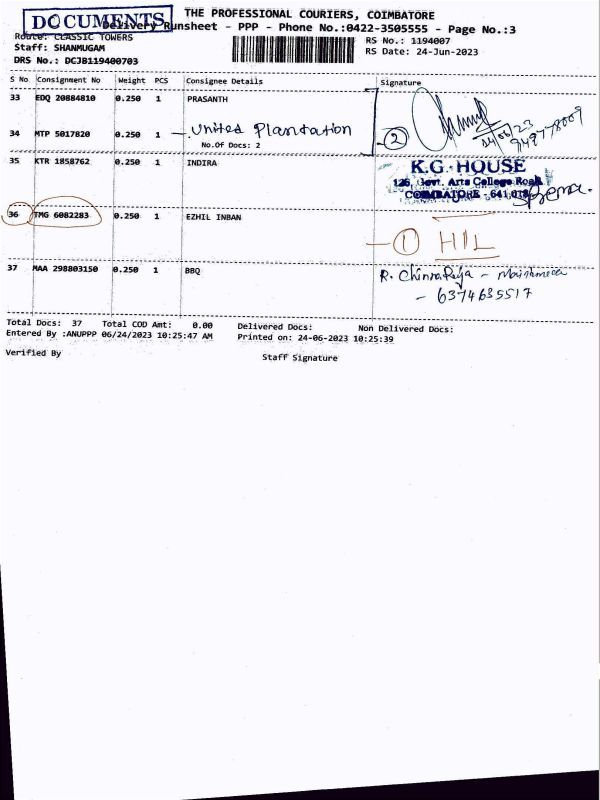 DOCUMENTS
THE PROFESSIONAL COURIERS, COIMBATORE
Delivery Runsheet - PPP - Phone No.:0422-3505555 - Page No.:3
Route: CLASSIC TOWERS
RS No.: 1194007
Staff: SHANMUGAM
RS Date: 24-Jun-2023
DRS No.: DCJB119400703
S No Consignment No Weight PCS Consignee Details Signature
33 EDQ 20884810 0.250 1 PRASANTH
34 MTP 5017820 0.250 1 - United Plantation
No.Of Docs: 2
2
24/06/23
35 KTR 1858762 0.250 1 INDIRA
K.G. HOUSE
126, Govt. Arts College Road
COIMBATORE - 641 018
36 TMG 6082283 0.250 1 EZHIL INBAN
- 1 HIL
37 MAA 298803150 0.250 1 BBQ
R. ChinnaRaja -
- 6374635517
Total Docs: 37 Total COD Amt: 0.00 Delivered Docs: Non Delivered Docs:
Entered By :ANUPPP 06/24/2023 10:25:47 AM Printed on: 24-06-2023 10:25:39
Verified By Staff Signature